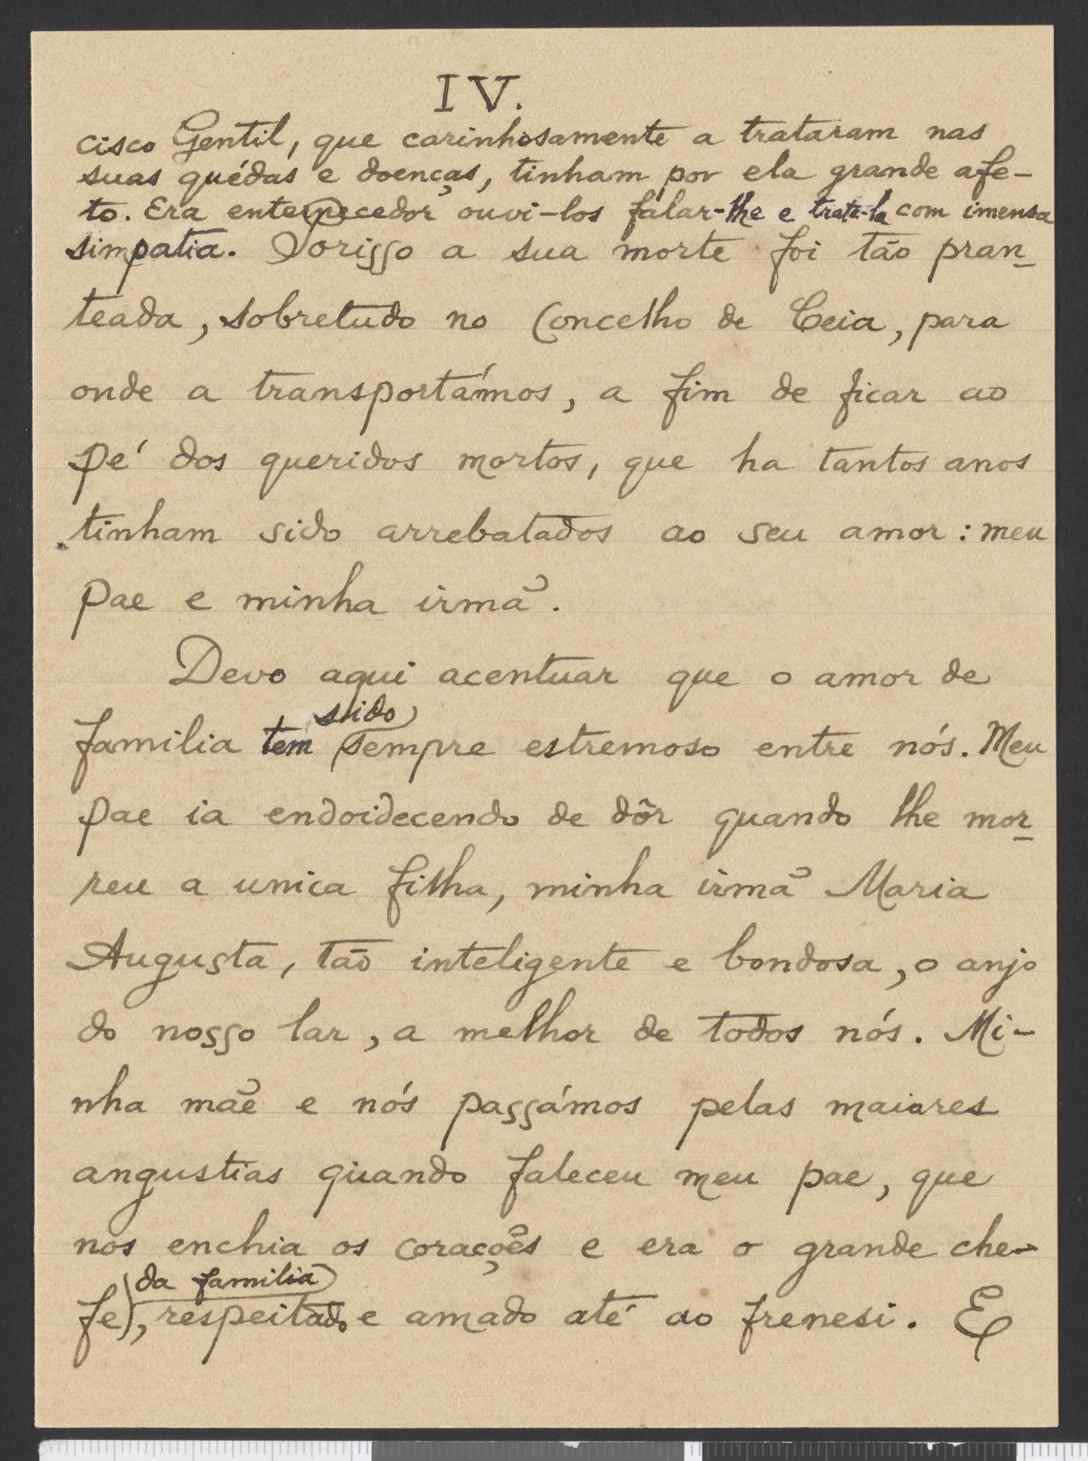 IV.
cisco Gentil, que carinhosamente a trataram nas
suas quédas e doenças, tinham por ela grande afe-
to. Era enternecedor ouvi-los falar-lhe e trata-la com imensa
simpatia. Porisso a sua morte foi tão pran-
teada, sobretudo no Concelho de Ceia, para
onde a transportámos, a fim de ficar ao
pé dos queridos mortos, que ha tantos anos
tinham sido arrebatados ao seu amor: meu
pae e minha irmã.
Devo aqui acentuar que o amor de
sido
familia tem sempre estremoso entre nós. Meu
pae ia endoidecendo de dôr quando lhe mor-
reu a unica filha, minha irmã Maria
Augusta, tão inteligente e bondosa, o anjo
do nosso lar, a melhor de todos nós. Mi-
nha mãe e nós passámos pelas maiores
angustias quando faleceu meu pae, que
nos enchia os corações e era o grande che-
da familia
fe, respeitado e amado até ao frenesi. E